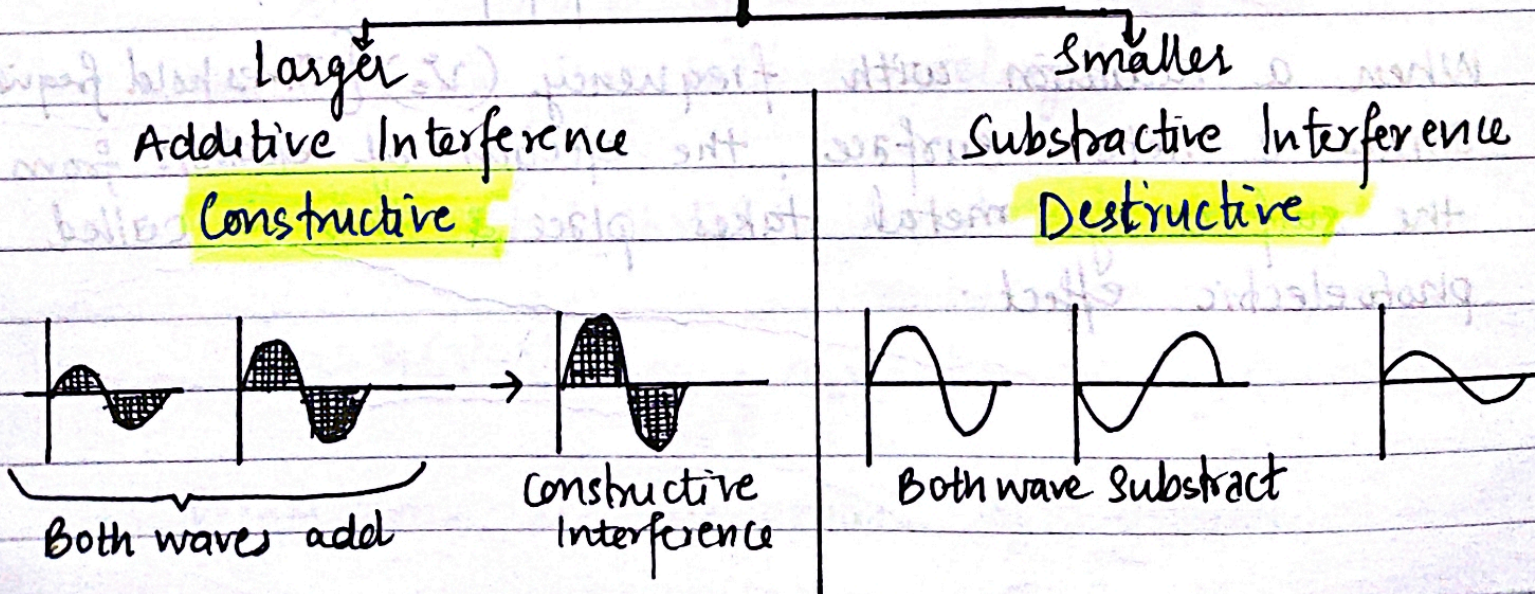 Larger
Additive Interference
Constructive
Both waves add
Constructive
Interference
Smaller
Substractive Interference
Destructive
Both wave Substract